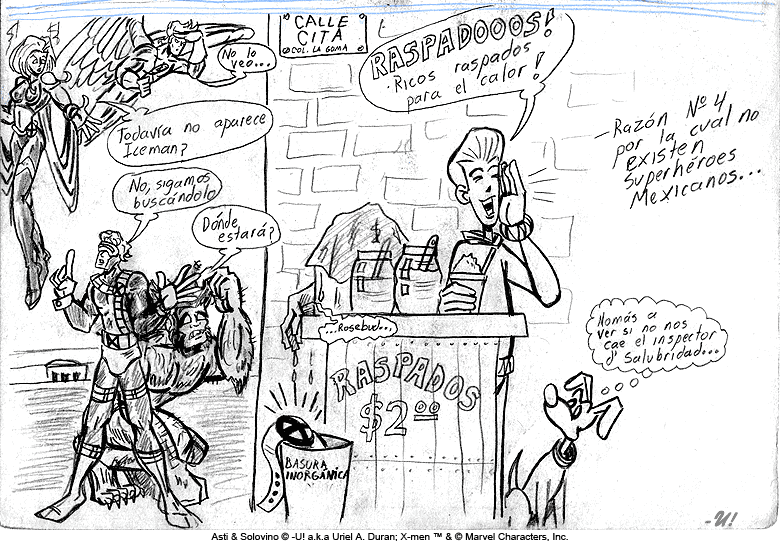 No lo
veo...
Todavía no aparece
Iceman?
No, sigamos
buscándolo
Dónde
estará?
CALLE
CITÁ
COL. LA GOMA
RASPADOOOS!
Ricos raspados
para el calor!
-Razón Nº 4
por la cual no
existen
Superhéroes
Mexicanos...
...Rosebud...
RASPADOS
$2.00
BASURA
INORGÁNICA
Nomás a
ver si no nos
cae el inspector
d' Salubridad...
-U!
Asti & Solovino © -U! a.k.a Uriel A. Duran; X-men ™ & © Marvel Characters, Inc.